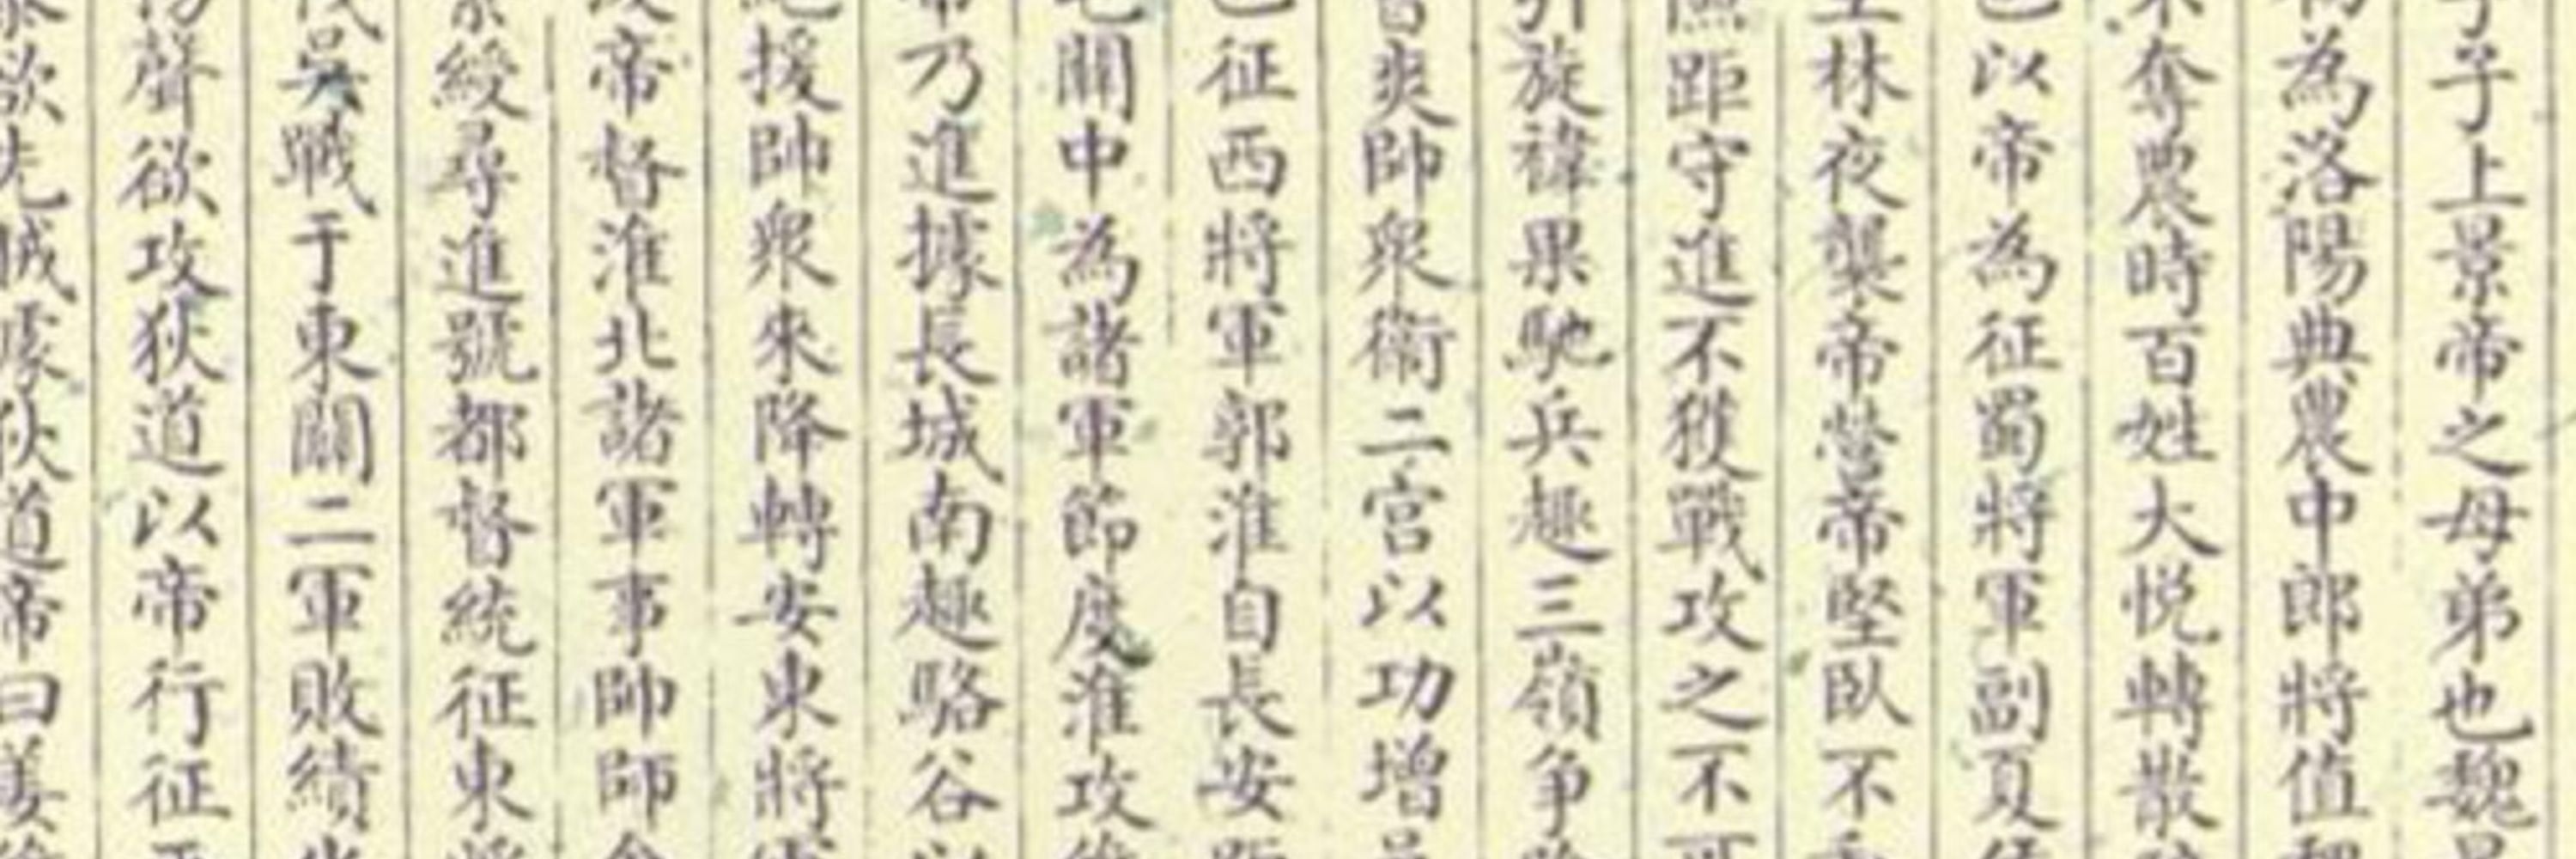 子子上景帝之母弟也魏
為洛陽典農中郎將值
奪農時百姓大悅轉散
以帝為征蜀將軍副夏侯
林夜襲帝營帝堅臥不
距守進不獲戰攻之不可
引旋禕果馳兵趣三嶺爭
爽帥衆衛二宮以功增
征西將軍郭淮自長安距
關中為諸軍節度淮攻維
帝乃進據長城南趣駱谷以
援帥衆來降轉安東將軍
帝督淮北諸軍事帥師會
綬尋進號都督統征東將
吳戰于東關二軍敗績
聲欲攻狄道以帝行征西
欲先城據狄道帝曰姜維